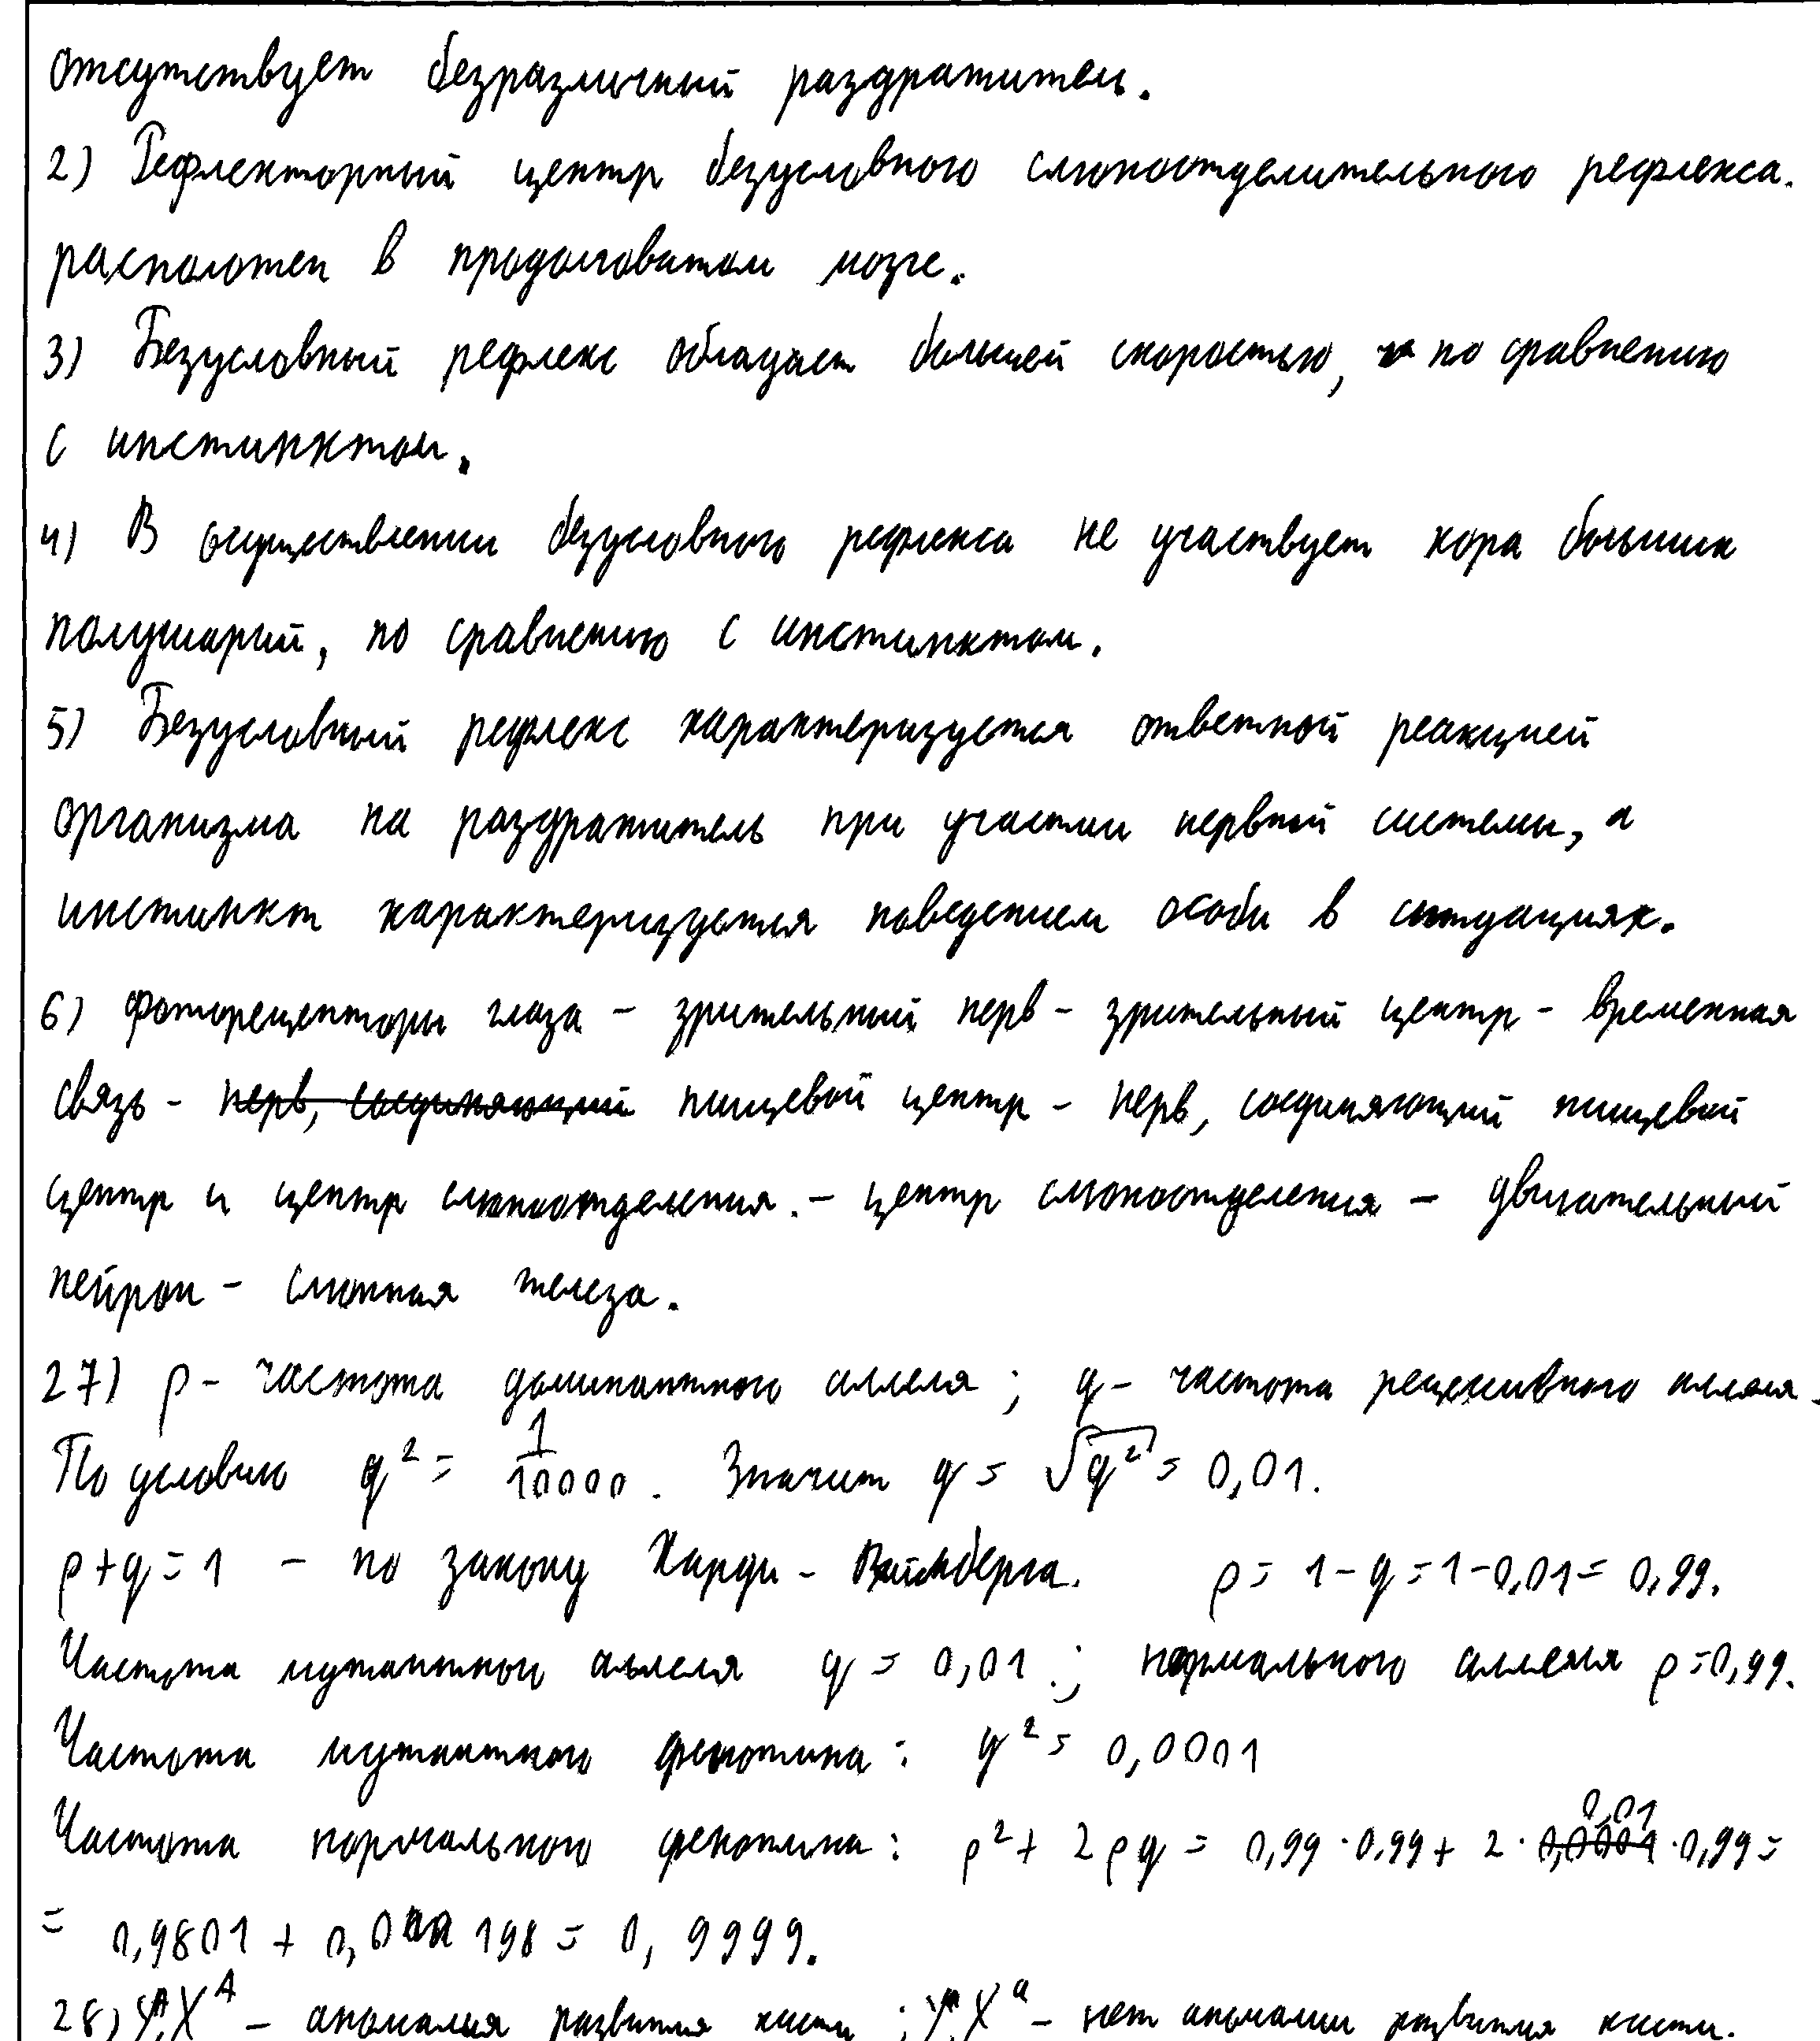 отсутствует безразличный раздражитель.
2) Рефлекторный центр безусловного слюноотделительного рефлекса.
расположен в продолговатом мозге.
3) Безусловный рефлекс обладает большей скоростью, по сравнению
с инстинктом.
4) В осуществлении безусловного рефлекса не участвует кора больших
полушарий, по сравнению с инстинктом.
5) Безусловный рефлекс характеризуется ответной реакцией
организма на раздражитель при участии нервной системы, а
инстинкт характеризуется поведением особи в ситуациях.
6) Фоторецепторы глаза - зрительный нерв - зрительный центр - временная
связь - нерв, соединяющий пищевой центр - нерв, соединяющий пищевой
центр и центр слюноотделения. - центр слюноотделения - двигательный
нейрон - слюнная железа.
27) p - частота доминантного аллеля; q - частота рецессивного аллеля.
По условию q² = 1/10000. Значит q = √q² = 0,01.
p+q=1 - по закону Харди - Вайнберга. p = 1-q = 1-0,01 = 0,99.
Частота мутантного аллеля q = 0,01; нормального аллеля p=0,99.
Частота мутантного фенотипа: q² = 0,0001
Частота нормального фенотипа: p² + 2pq = 0,99·0,99 + 2·0,01·0,99 =
= 0,9801 + 0,0198 = 0,9999.
28) X^A - аномалия развития кисти; X^a - нет аномалии развития кисти.